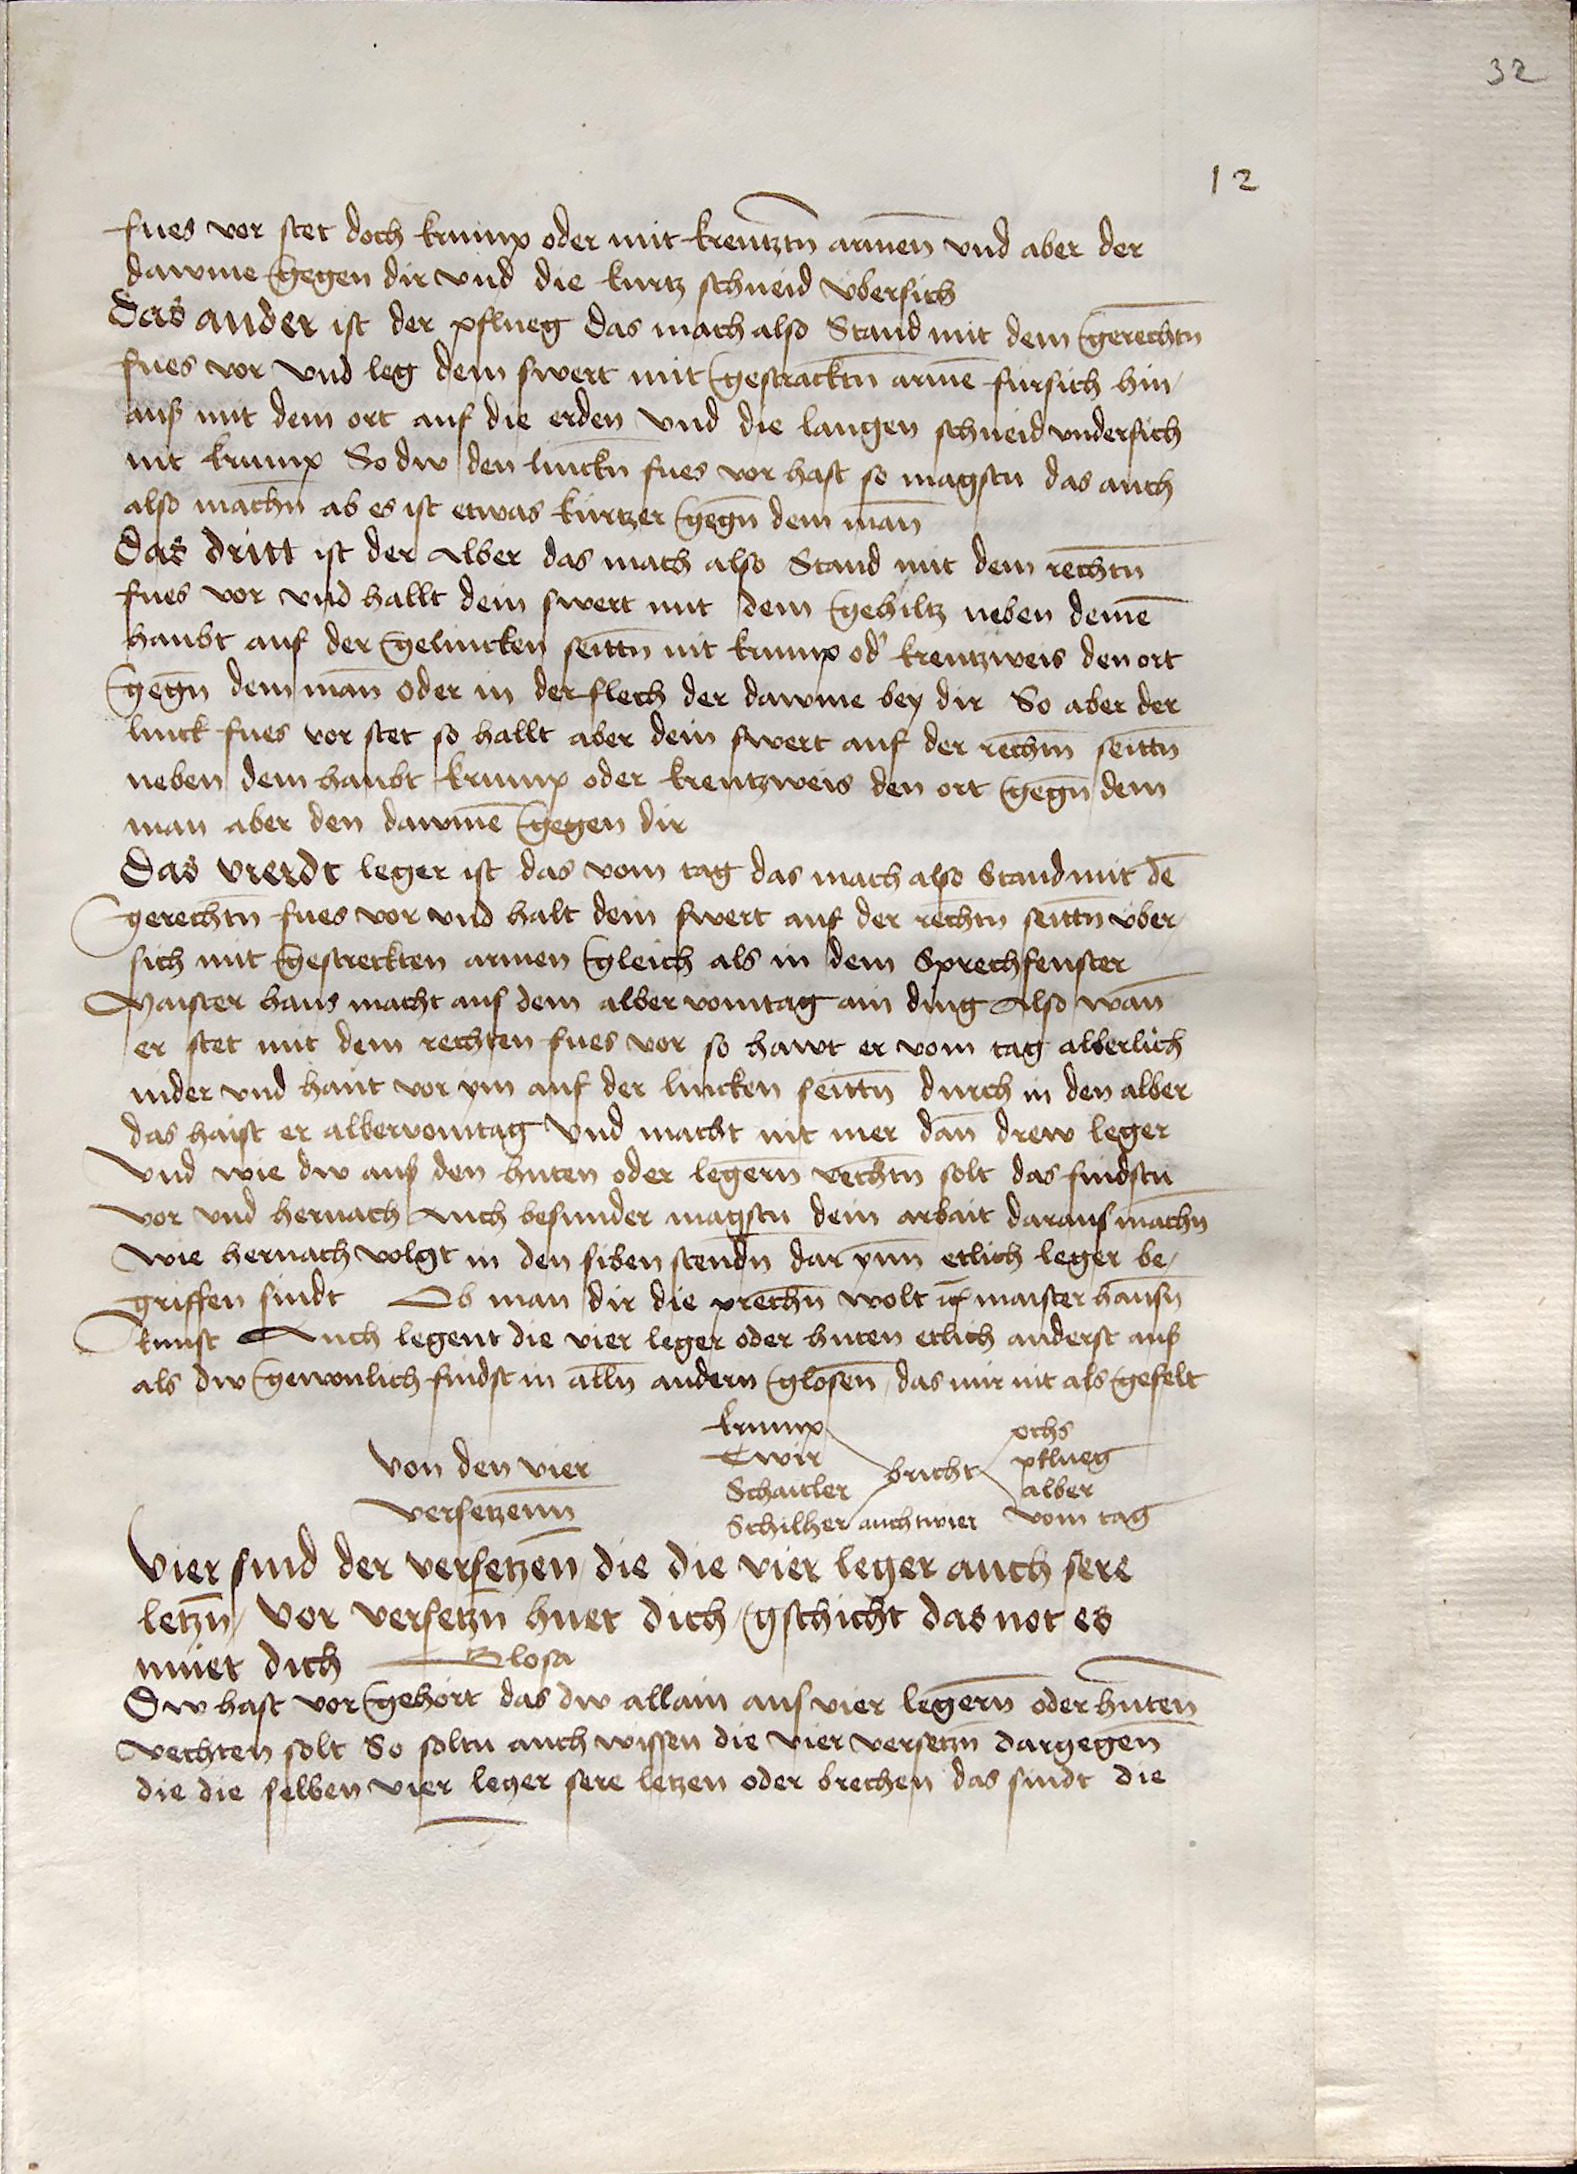 32
12
fues vor stet doch krump oder mit kreutztn̄ armen̄ vnd aber der
dawme gegen dir vnd die kurtz schneid übersich
Das ander ist der pflueg das mach also Stand mit dem gerechtn̄
fues vor vnd leg dem swert mit gestracktn̄ armē fürsich hin
auß mit dem ort auf die erden vnd die langen schneid vndersich
nit krump So dw den linckn̄ fues vor hast so magstu das auch
also machn̄ ab es ist etwas kürtzer gegn̄ dem man̄
Das dritt ist der Alber das mach also Stand mit dem rechtn̄
fues vor vnd hallt dein swert mit dem gehiltz neben deinē
haubt auf der gelincken seittn̄ nit krump od' kreutzweis den ort
gegn̄ dem man̄ oder in der flech der dawme bey dir So aber der
linck fues vor stet so hallt aber dein swert auf der rechtn̄ seittn̄
neben dem haubt krump oder kreutzweis den ort gegn̄ dem
man aber den dawmē gegen dir
Das vierdt leger ist das vom tag das mach also Stand mit dē
gerechtn̄ fues vor vnd halt dein swert auf der rechtn̄ seittn̄ über
sich mit gestreckten armen gleich als in dem Sprechfenster
Maister hans macht auß dem alber vomtag ain ding Also wan̄
er stet mit dem rechten fues vor so hawt er vom tag alberlich
nider vnd haüt vor ym auf der lincken seittn̄ durch in den alber
das haist er albervomtag vnd macht nit mer dan̄ drew leger
Vnd wie dw auß den huten oder legern̄ vechtn̄ solt das findstu
vor vnd hernach Auch besunder magstu dein arbait darauß machn̄
wie hernach volgt in den siben stendn̄ dar ynn̄ etlich leger be
griffen sindt Ob man dir die prechn̄ wolt maister hansn̄
kunst Auch legent die vier leger oder huten etlich anderst auß
als dw gewonlich findst in alln̄ andern glosen̄ das mir nit als gefelt
Von den vier
versetzenn̄
krump
Twir
Schaitler
Schilher auch twier
bricht
ochs
pflueg
alber
vom tag
Vier sind der versetzen̄ die die vier leger auch sere
letzn̄ / Vor versetzn̄ huet dich / gschicht das not es
müet dich Glosa
Dw hast vor gehört das dw allain auß vier legern̄ oder huten
vechten solt So soltu auch wissen die vier versetzn̄ dargegen̄
die die selben vier leger sere letzen oder brechen das sindt die